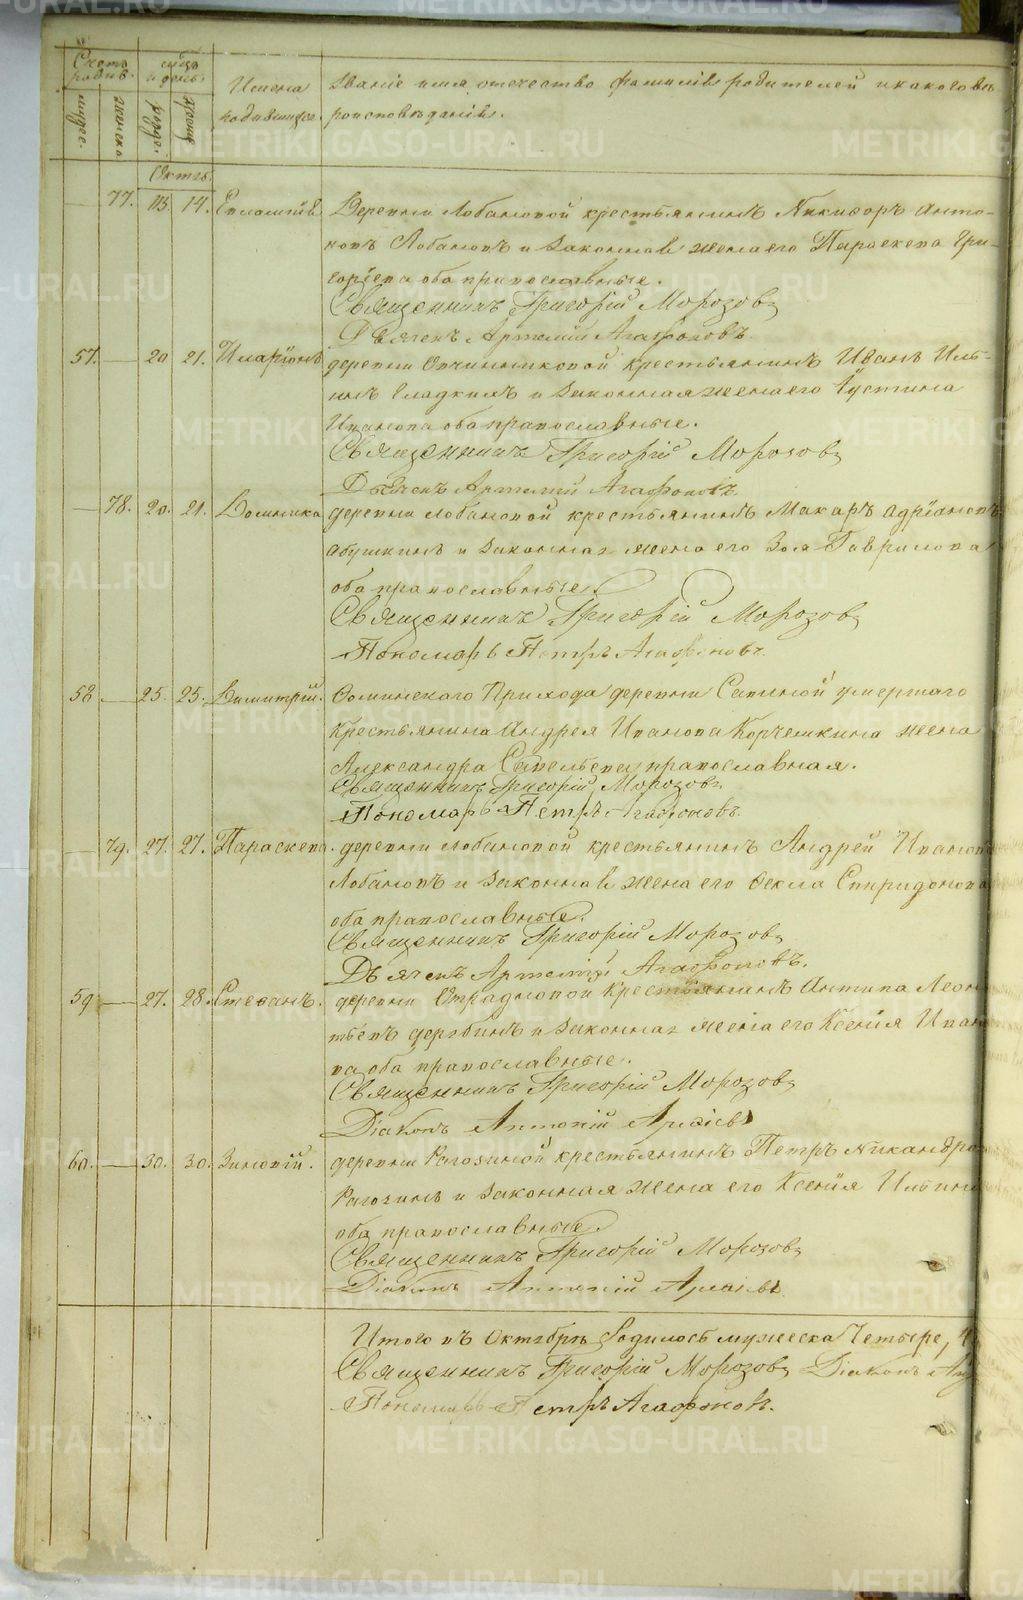 Счетъ родив.
мѣсяцъ и день.
Имена родившихся.
Званіе имя, отечество фамилія родителей и какого вѣ-
роисповѣданія.
мужес.
женско
рожде.
креще.
Октяб.
77. 13 14. Евлампія Деревни Лобановой крестьянинъ Никифоръ Анто-
новъ Лобановъ и законная жена его Параскева Гри-
горіева оба православные.
Священникъ Григорій Морозовъ
Дьячекъ Артемій Агафоновъ
57. 20 21. Иларіонъ деревни Овчинниковой крестьянинъ Иванъ Иль-
инъ Гладкихъ и законная жена его Іустина
Иванова оба православные.
Священникъ Григорій Морозовъ
Дьячекъ Артемій Агафоновъ.
78. 20. 21. Домника деревни Лобановой крестьянинъ Макаръ Адріановъ
Абушкинъ и законная жена его Зоя Гаврилова
оба православные.
Священникъ Григорій Морозовъ
Пономарь Петръ Агафоновъ.
58 25. 25. Димитрій. Соминскаго Прихода деревни Савиной умершаго
крестьянина Андрея Иванова Корчемкина жена
Александра Савельева православная.
Священникъ Григорій Морозовъ
Пономарь Петръ Агафоновъ.
79. 27. 27. Параскева. деревни Лобановой крестьянинъ Андрей Иванов
Лобановъ и законная жена его Фекла Спиридонова
оба православные.
Священникъ Григорій Морозовъ
Дьячекъ Артемій Агафоновъ.
59 27. 28. Стефанъ. деревни Отрадновой крестьянинъ Антипа Леон
тьевъ Дерябинъ и законная жена его Ксенія Иван
ва оба православные.
Священникъ Григорій Морозовъ
Діаконъ Антоній
60. 30. 30. Зиновій. деревни Рагозиной крестьянинъ Петръ Никандро
Рагозинъ и законная жена его Ксенія Ильин
оба православные.
Священникъ Григорій Морозовъ
Діаконъ Антоній
Итого въ Октябрѣ родилось мужеска Четыре,
Священникъ Григорій Морозовъ Діаконъ Ан
Пономарь Петръ Агафоновъ.
METRIKI.GASO-URAL.RU